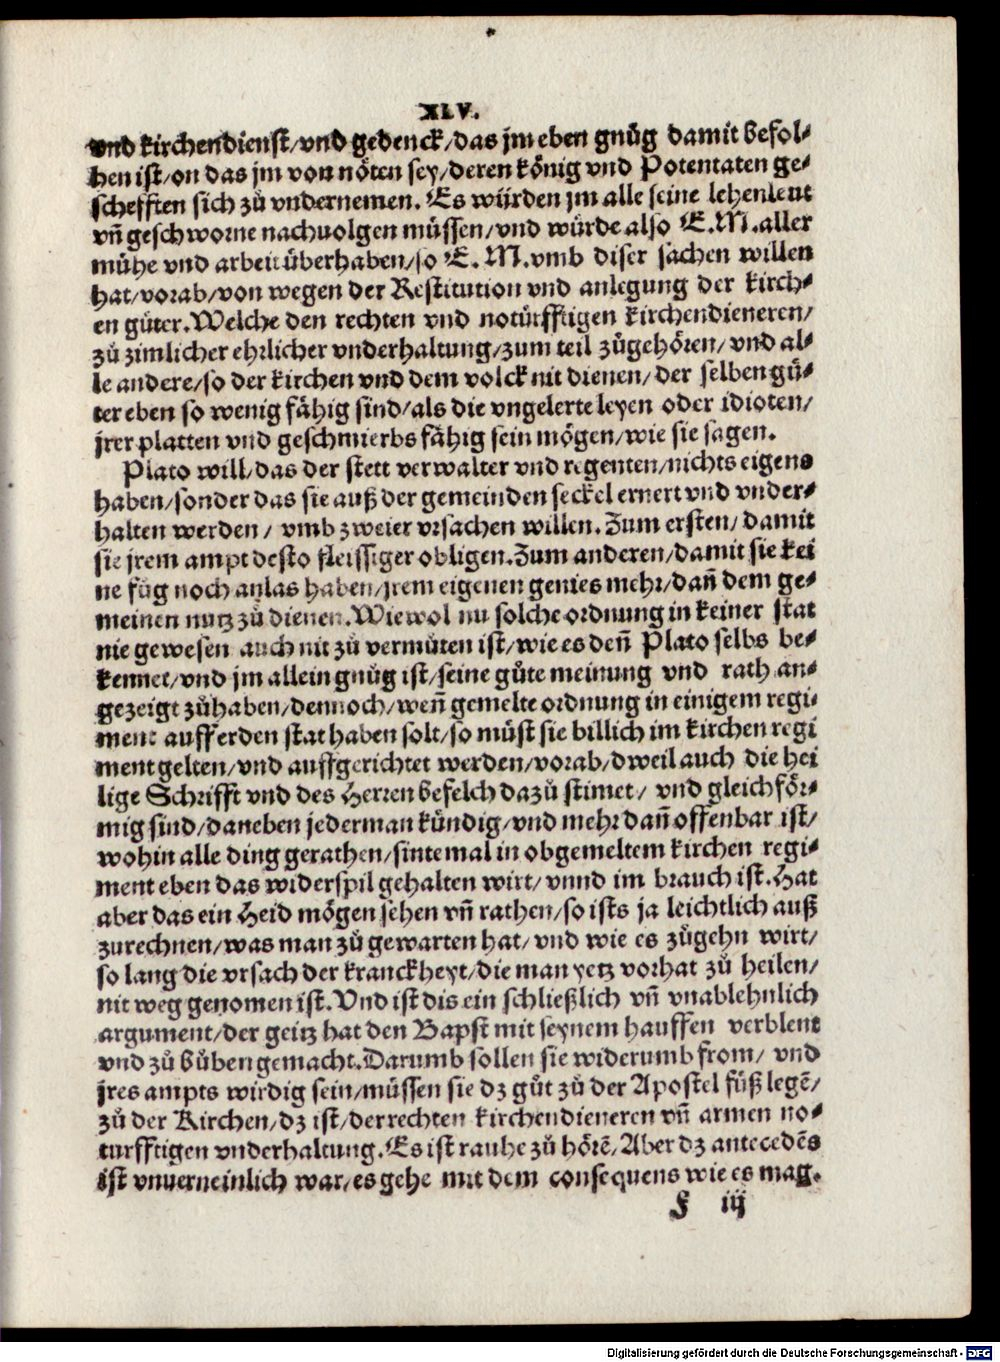 XLV.
vnd kirchendienst/vnd gedenck/das jm eben gnůg damit befol-
hen ist/on das jm von nöten sey/deren künig vnd Potentaten ge-
schefften sich zů vndernemen. Es würden jm alle seine lehenleut
vñ geschworne nachuolgen müssen/vnd würde also E.M.aller
mühe vnd arbeit überhaben/so E. M.vmb diser sachen willen
hat/vorab/von wegen der Restitution vnd anlegung der kirch-
en güter.Welche den rechten vnd notürfftigen kirchendieneren/
zů zimlicher ehrlicher vnderhaltung/zum teil zůgehören/vnd al-
le andere/so der kirchen vnd dem volck nit dienen/der selben gü-
ter eben so wenig fähig sind/als die vngelerte leyen oder idioten/
jrer platten vnd geschmierbs fähig sein mögen/wie sie sagen.
Plato will/das der stett verwalter vnd regenten/nichts eigens
haben/sonder das sie auß der gemeinden seckel ernert vnd vnder-
halten werden/ vmb zweier vrsachen willen.Zum ersten/damit
sie jrem ampt desto fleissiger obligen.Zum anderen/damit sie kei
ne fůg noch anlas haben/jrem eigenen genies mehr/dañ dem ge-
meinen nutz zů dienen.Wiewol nu solche ordnung in keiner stat
nie gewesen auch nit zů vermůten ist/wie es deñ Plato selbs be-
kennet/vnd jm allein gnůg ist/seine gůte meinung vnd rath an-
gezeigt zůhaben/dennoch/weñ gemelte ordnung in einigem regi-
ment auff erden stat haben solt/so můst sie billich im kirchen regi
ment gelten/vnd auffgerichtet werden/vorab/dweil auch die hei
lige Schrifft vnd des Herren befelch dazů stimet/ vnd gleichför-
mig sind/daneben jederman kündig/vnd mehr dañ offenbar ist/
wohin alle ding gerathen/sintemal in obgemeltem kirchen regi-
ment eben das widerspil gehalten wirt/vnnd im brauch ist.Hat
aber das ein Heid mögen sehen vñ rathen/so ists ja leichtlich auß
zurechnen/was man zů gewarten hat/vnd wie es zůgehn wirt/
so lang die vrsach der kranckheyt/die man yetz vorhat zů heilen/
nit weg genomen ist.Vnd ist dis ein schließlich vñ vnablehnlich
argument/der geitz hat den Bapst mit seynem hauffen verblent
vnd zů bůben gemacht.Darumb sollen sie widerumb from/ vnd
jres ampts wirdig sein/müssen sie dz gůt zů der Apostel füß legẽ/
zů der Kirchen/dz ist/der rechten kirchendieneren vñ armen no-
turfftigen vnderhaltung.Es ist rauhe zů hörẽ/Aber dz antecedẽs
ist vnuerneinlich war/es gehe mit dem consequens wie es mag.
F iij
Digitalisierung gefördert durch die Deutsche Forschungsgemeinschaft - DFG